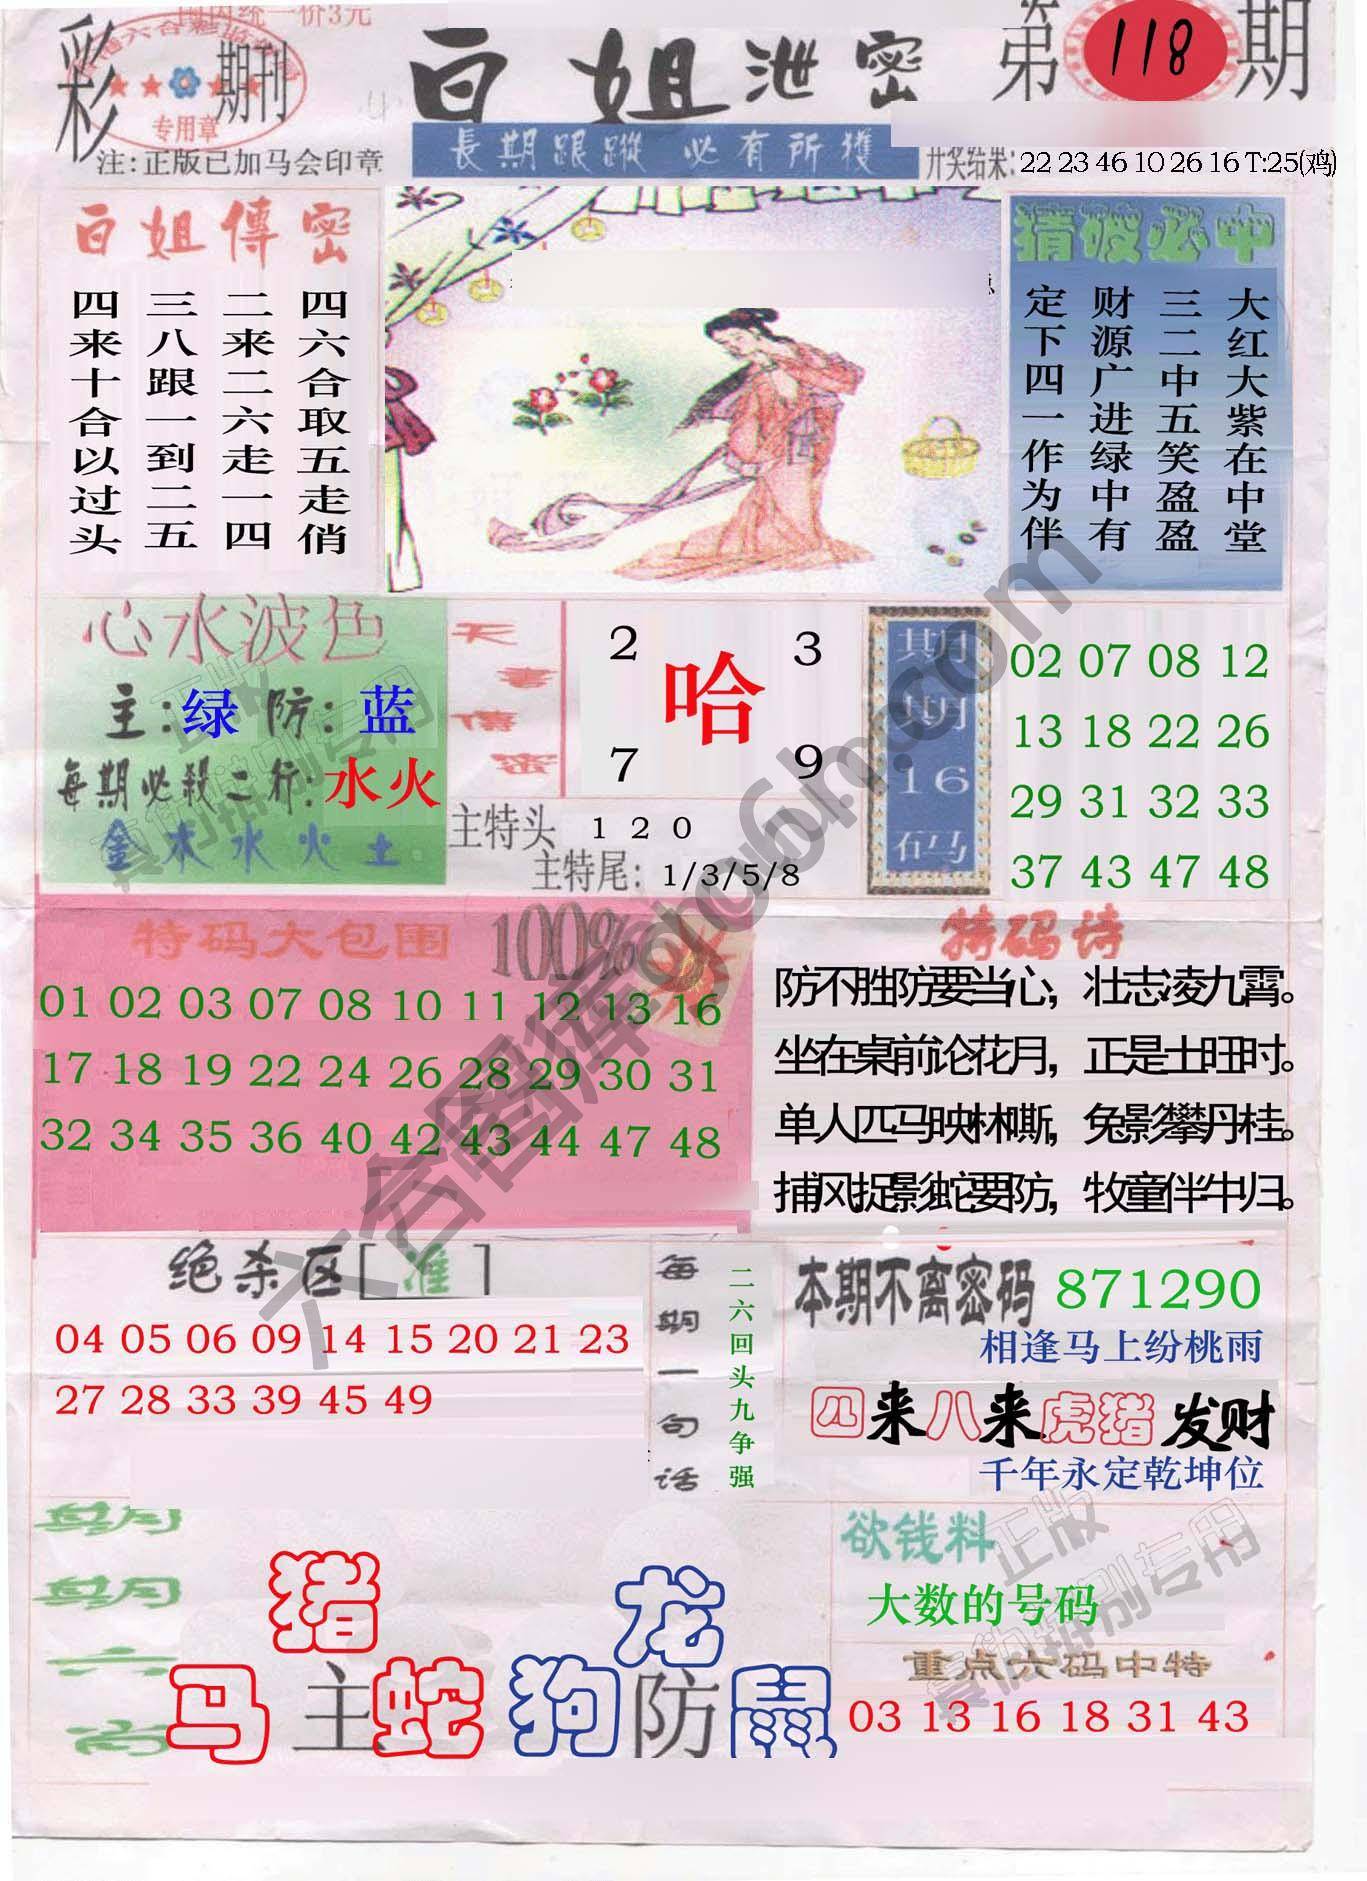 国内统一价3元
彩
期刊
专用章
注:正版已加马会印章
白姐泄密
長期跟蹤 必有所獲
第118期
开奖结果: 22 23 46 10 26 16 T:25(鸡)
白姐傳密
四六合取五走俏
二来二六走一四
三八跟一到二五
四来十合以过头
猜破必中
大红大紫在中堂
三二中五笑盈盈
财源广进绿中有
定下四一作为伴
心水波色
主:绿 防:蓝
每期必殺二行:水火
金木水火土
天書傳密
2 3
哈
7 9
主特头 1 2 0
主特尾: 1/3/5/8
期期16码
02 07 08 12
13 18 22 26
29 31 32 33
37 43 47 48
特码大包围 100%
01 02 03 07 08 10 11 12 13 16
17 18 19 22 24 26 28 29 30 31
32 34 35 36 40 42 43 44 47 48
特码诗
防不胜防要当心，壮志凌九霄。
坐在桌前论花月，正是土旺时。
单人匹马映林嘶，兔影攀丹桂。
捕风捉影蛇要防，牧童伴牛归。
绝杀区[准]
04 05 06 09 14 15 20 21 23
27 28 33 39 45 49
每期一句话
二六回头九争强
本期不离密码 871290
相逢马上纷桃雨
四来八来虎猪发财
千年永定乾坤位
期期六肖
猪
马主蛇
龙
狗防鼠
欲钱料
大数的号码
重点六码中特
03 13 16 18 31 43
正版
六合图库